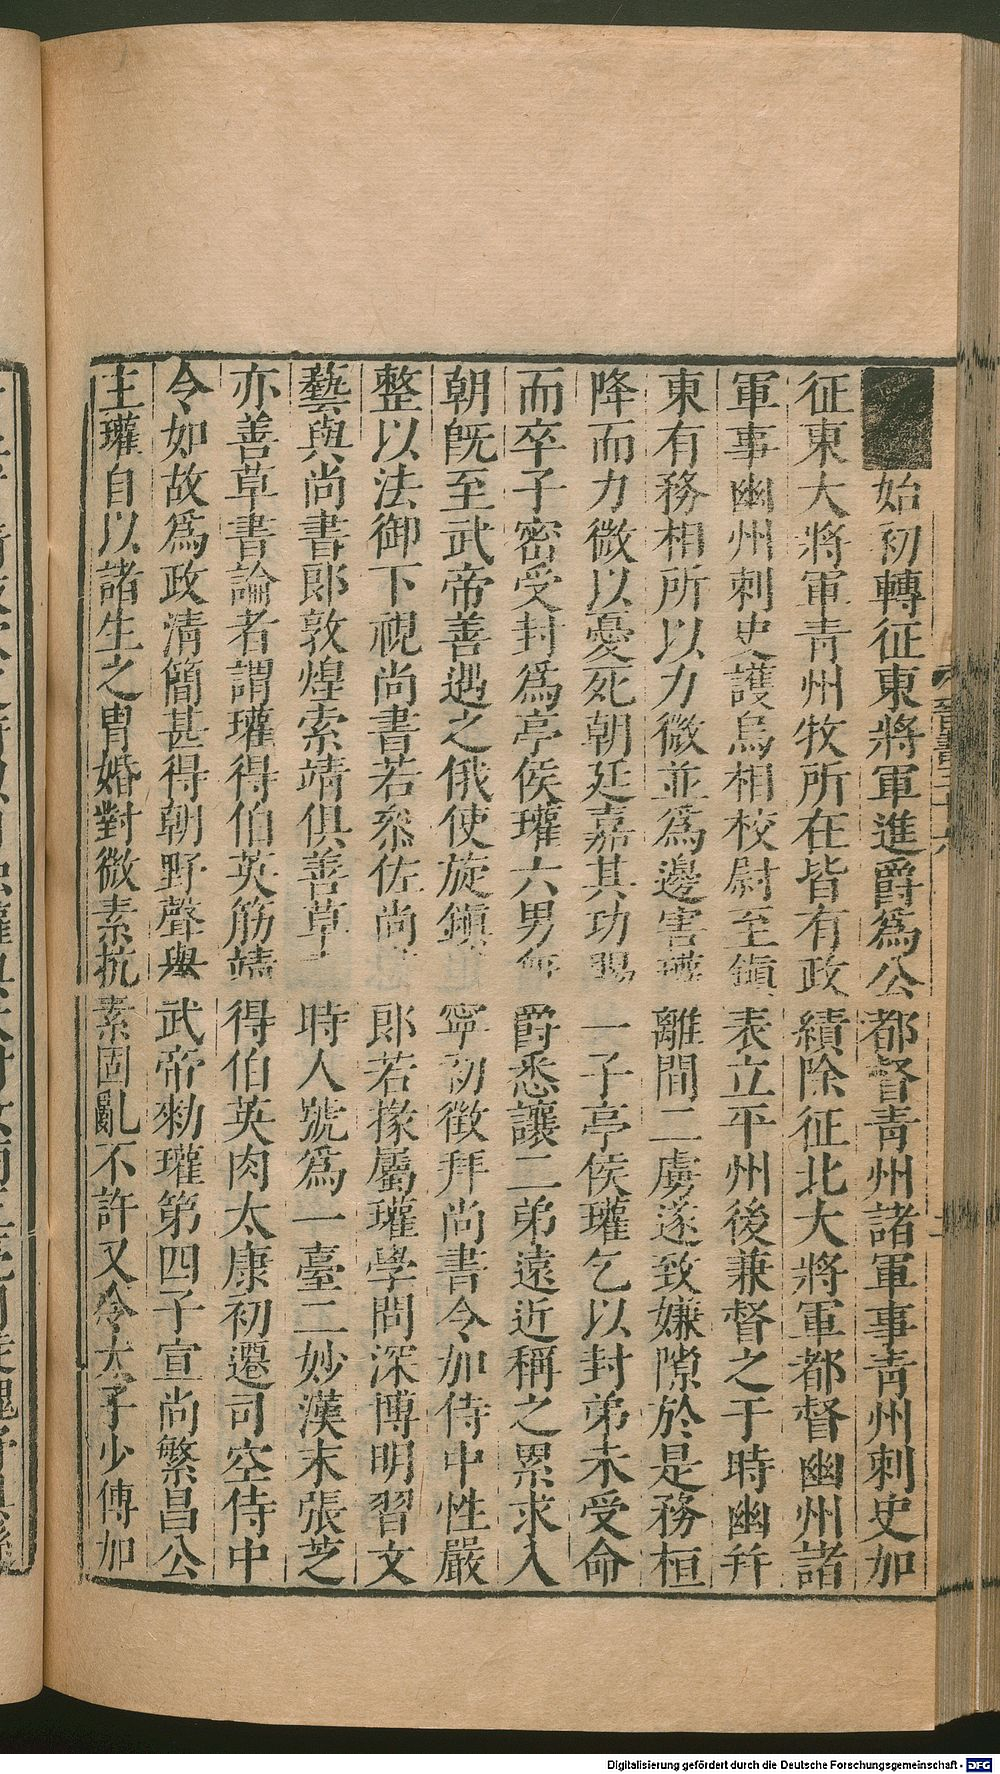 始初轉征東將軍進爵為公都督青州諸軍事青州刺史加
征東大將軍青州牧所在皆有政績除征北大將軍都督幽州諸
軍事幽州刺史護烏相校尉至鎮表立平州後兼督之于時幽并
東有務相所以力微並為邊害瓘離間二虜遂致嫌隙於是務桓
降而力微以憂死朝廷嘉其功賜一子亭侯瓘乞以封弟未受命
而卒子密受封為亭侯瓘六男無爵悉讓二弟遠近稱之累求入
朝旣至武帝善遇之俄使旋鎮寧初徵拜尚書令加侍中性嚴
整以法御下視尚書若叅佐尚郎若掾屬瓘學問深博明習文
藝與尚書郎敦煌索靖俱善草時人號為一臺二妙漢末張芝
亦善草書論者謂瓘得伯英筋靖得伯英肉太康初遷司空侍中
令如故為政清簡甚得朝野聲與武帝勑瓘第四子宣尚繁昌公
主瓘自以諸生之冑婚對微素抗素固亂不許又令太子少傅加
晉書三十六
Digitalisierung gefördert durch die Deutsche Forschungsgemeinschaft - DFG